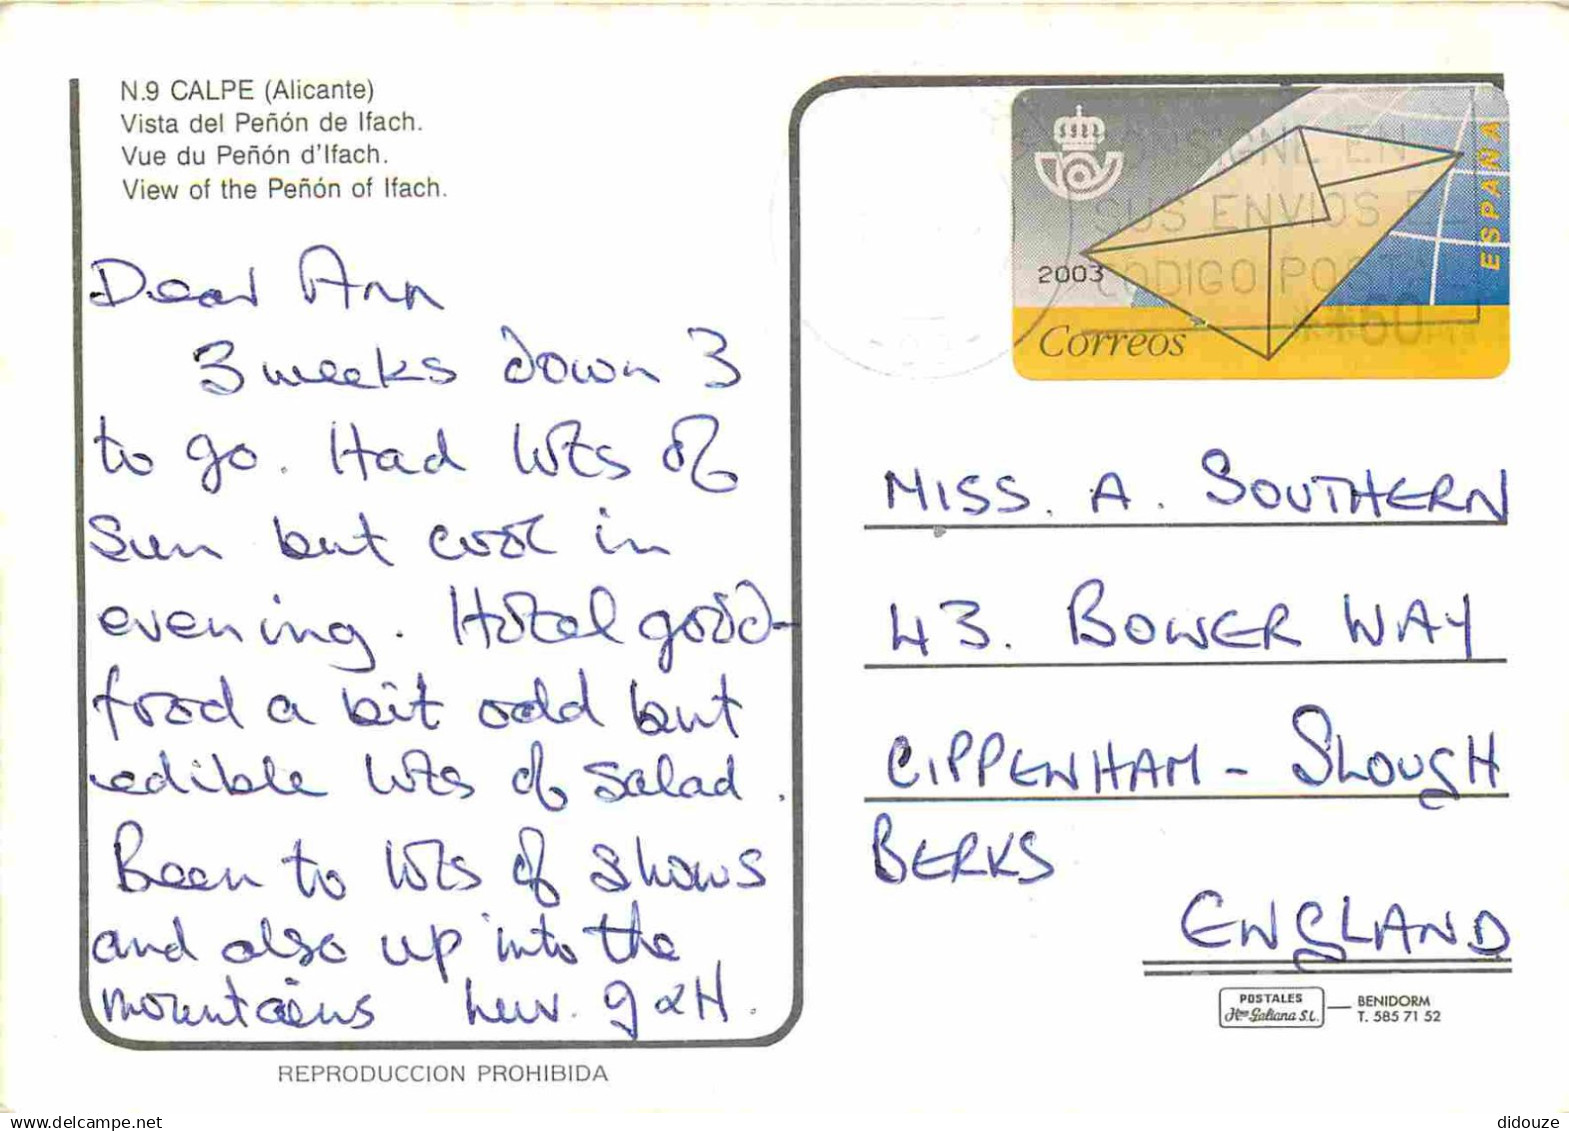 N.9 CALPE (Alicante)
Vista del Peñón de Ifach.
Vue du Peñón d'Ifach.
View of the Peñón of Ifach.
Dear Ann
3 weeks down 3
to go. Had lots of
sun but cool in
evening. Hotel good-
food a bit odd but
edible lots of salad.
Been to lots of shows
and also up into the
mountains luv. G & H.
REPRODUCCION PROHIBIDA
CONSIGNE EN
SUS ENVIOS EL
CODIGO POSTAL
**60
ESPAÑA
2003
Correos
MISS. A. SOUTHERN
43. BOWER WAY
CIPPENHAM - SLOUGH
BERKS
ENGLAND
POSTALES
Hnos Galiana S.L.
BENIDORM
T. 585 71 52
delcampe.net
didouze